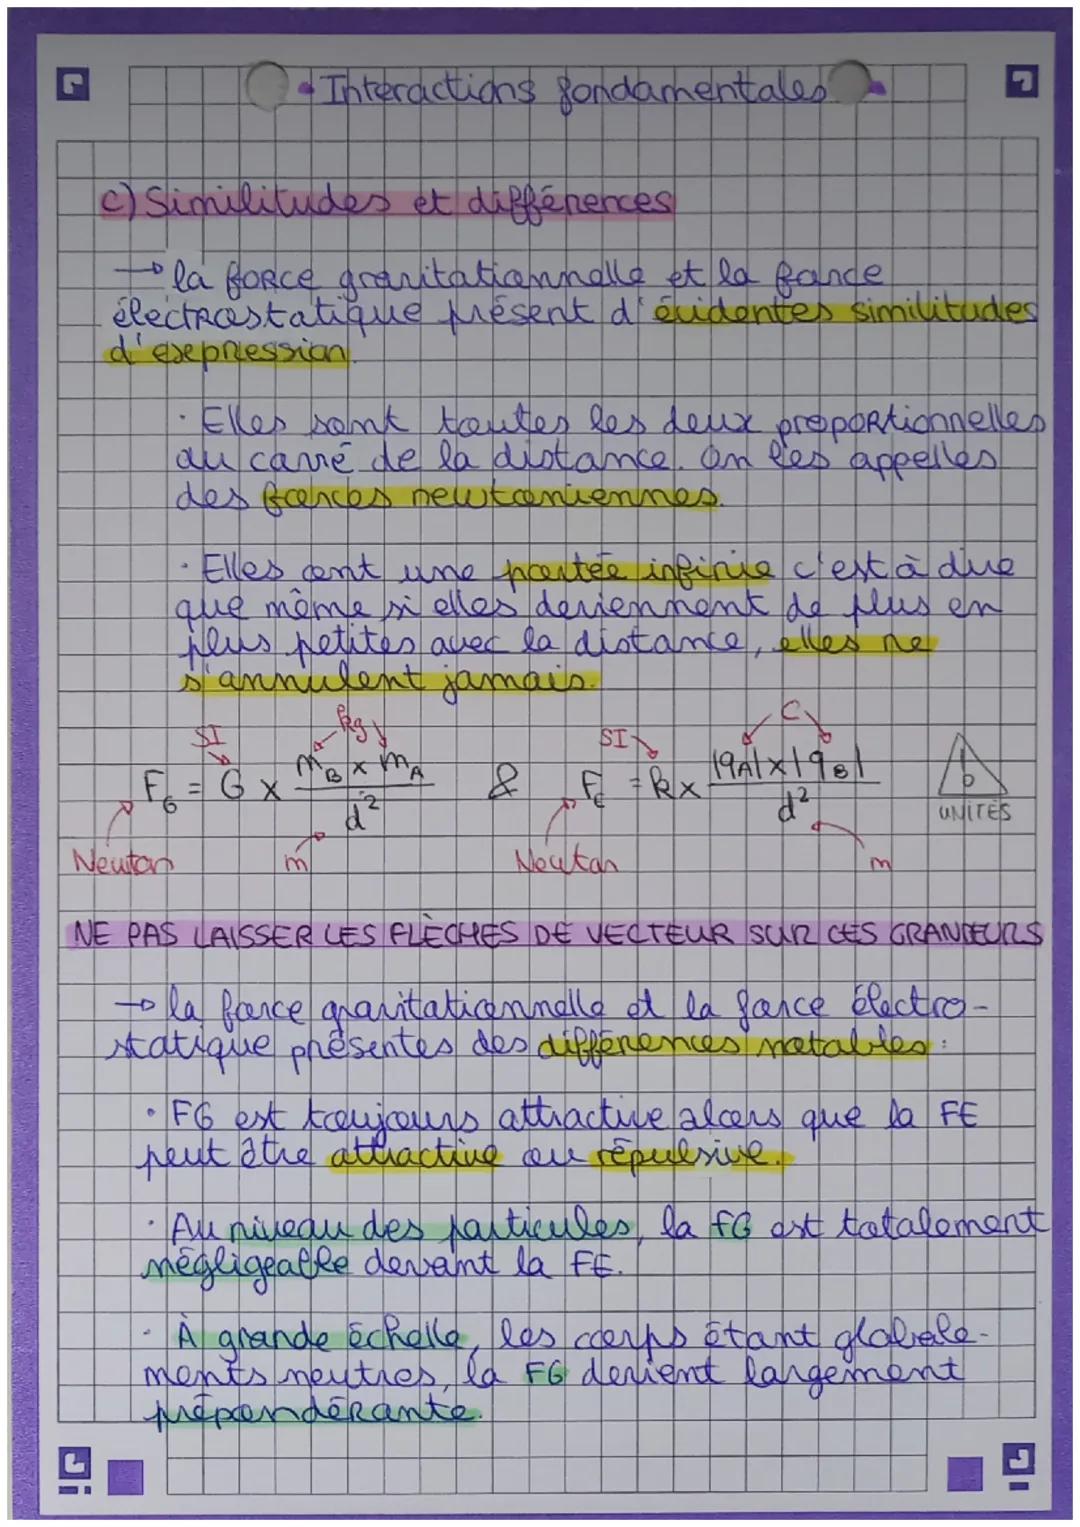 • Interactions fondamentales •
c) Similitudes et différences
→ la force gravitationnelle et la force
électrostatique présent d'évidentes similitudes
d'expression.
· Elles sont toutes les deux proportionnelles
au carré de la distance. On les appelles
des forces newtoniennes.
· Elles ont une portée infinie c'est à dire
que même si elles deviennent de plus en
plus petites avec la distance, elles ne
s'annulent jamais.
SI kg SI C
F_G = G × (m_B × m_A) / d² & F_E = k × (|q_A| × |q_B|) / d²
UNITÉS
Newton m Newton m
NE PAS LAISSER LES FLÈCHES DE VECTEUR SUR CES GRANDEURS
→ la force gravitationnelle et la force électro-
statique présentes des différences notables :
· FG est toujours attractive alors que la FE
peut être attractive ou répulsive.
· Au niveau des particules, la FG est totalement
négligeable devant la FE.
· À grande échelle, les corps étant globale-
ments neutres, la FG devient largement
prépondérante.